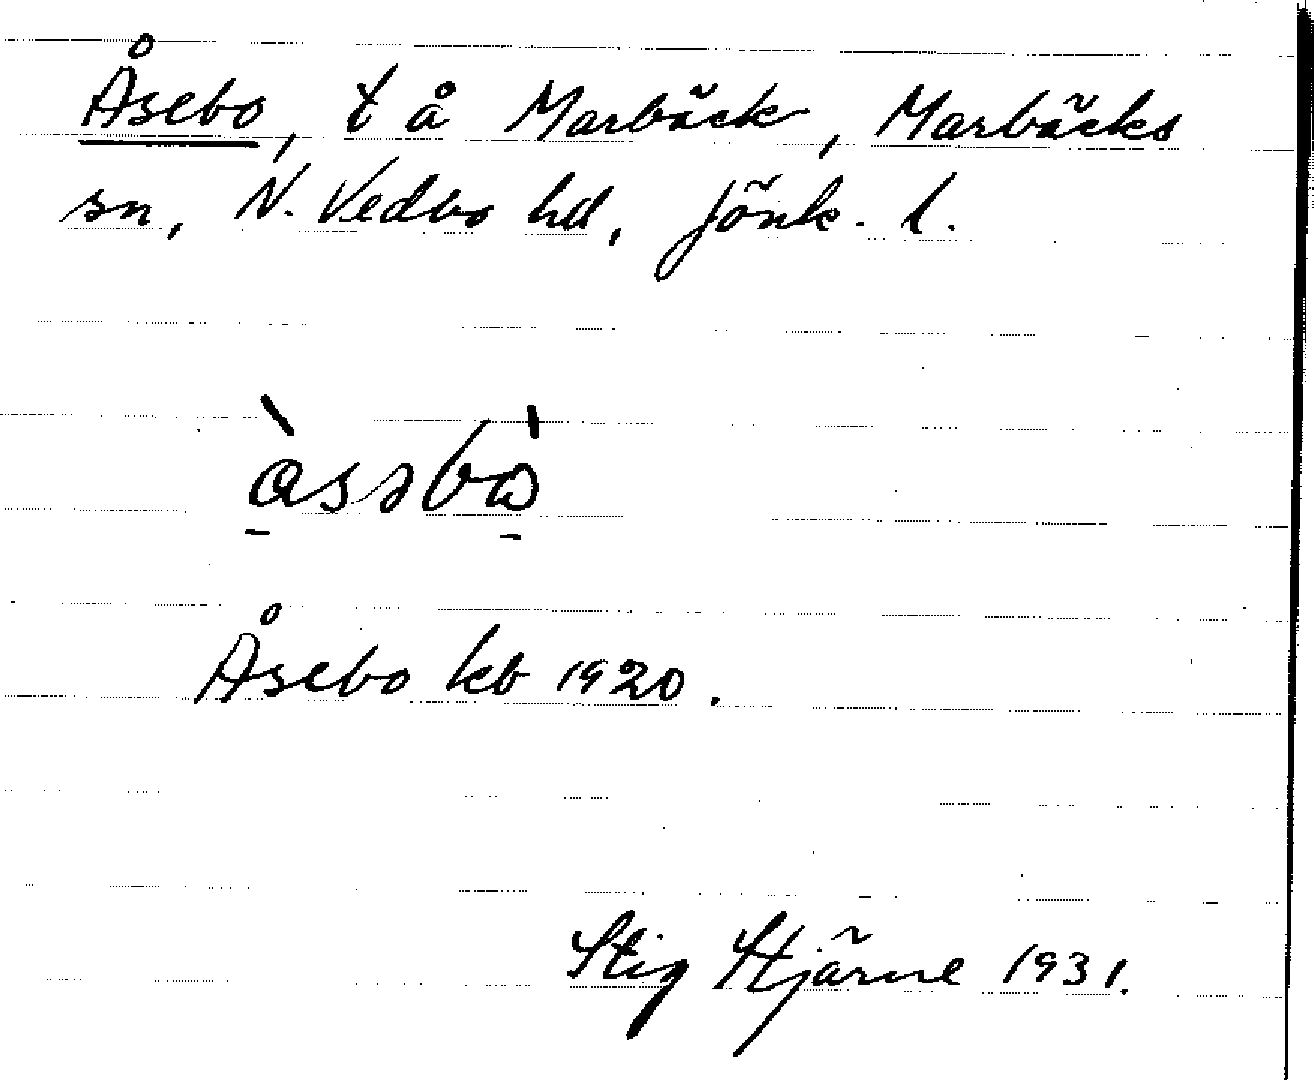 Åsebo, t å Marbäck, Marbäcks
sn, N. Vedbo hd, Jönk. l.
àsəbò
Åsebo kb 1920.
Stig Hjärne 1931.